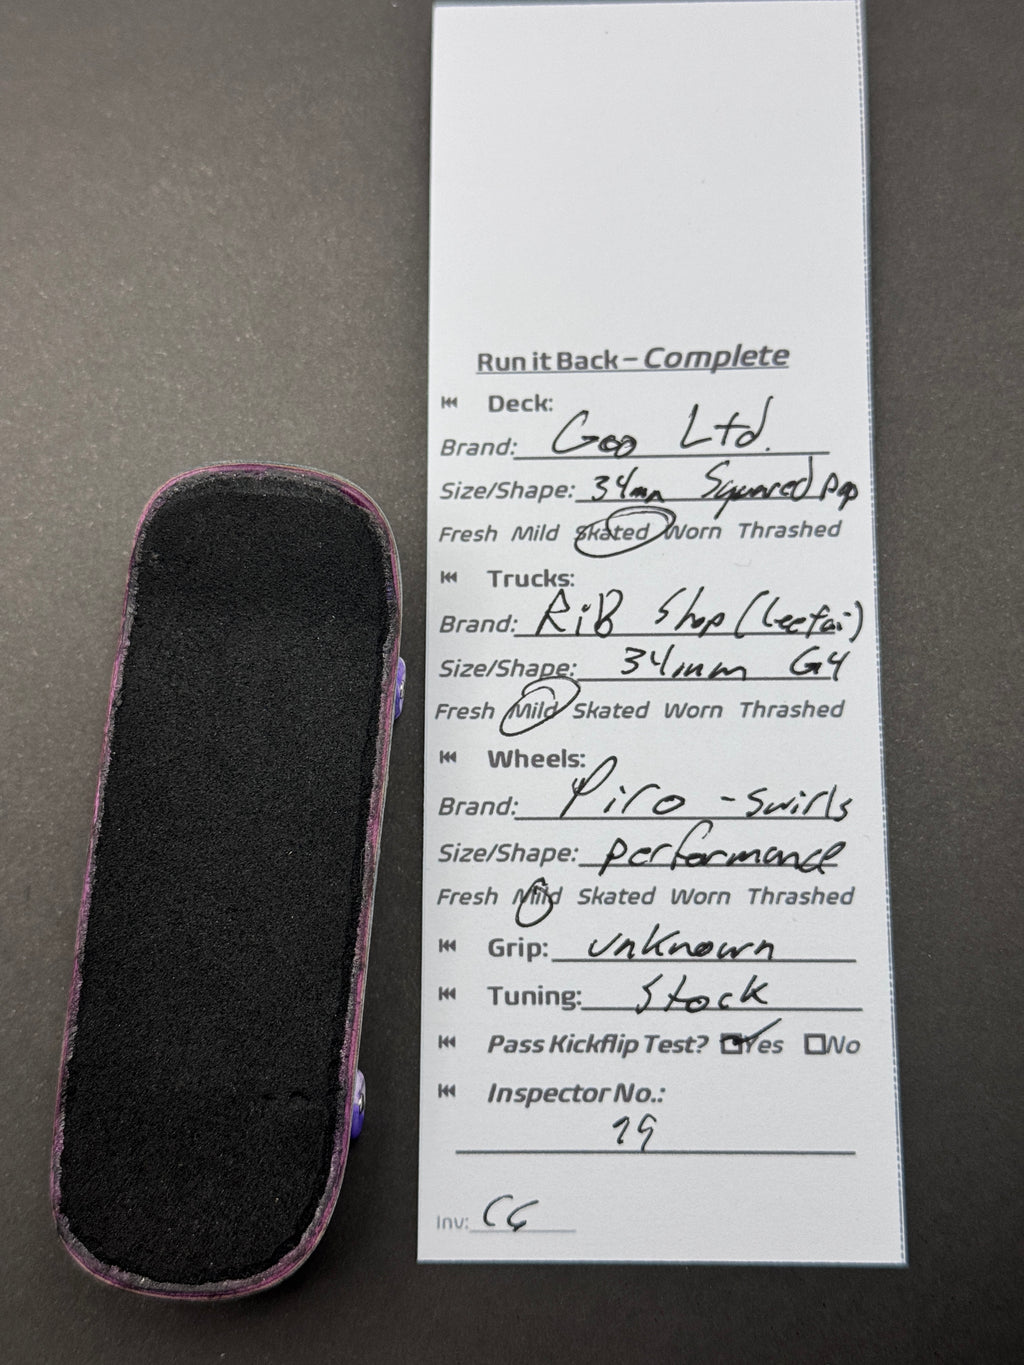 Run it Back – Complete
Deck:
Brand: Goo Ltd.
Size/Shape: 34mm Squared pop
Fresh Mild Skated Worn Thrashed
Trucks:
Brand: RiB Shop (leefai)
Size/Shape: 34mm G4
Fresh Mild Skated Worn Thrashed
Wheels:
Brand: Piro - swirls
Size/Shape: performance
Fresh Mild Skated Worn Thrashed
Grip: unknown
Tuning: Stock
Pass Kickflip Test? Yes No
Inspector No.:
19
Inv: